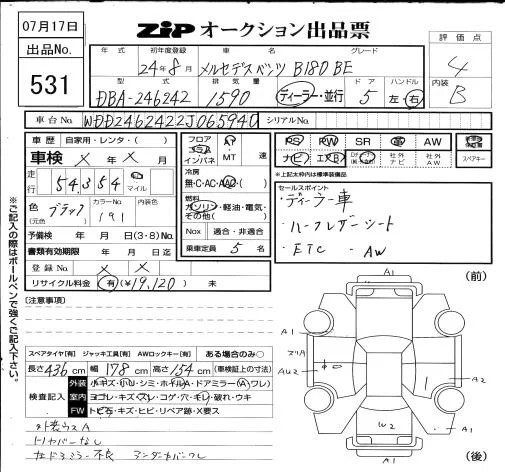 07月17日
ZIP オークション出品票
出品No.
531
評価点
4
内装
B
年式 初年度登録 車名 グレード
24年8月 メルセデスベンツ B180 BE
型式 排気量 ドア ハンドル
DBA-246242 1590 ディーラー・並行 5 左・右
車台No. WDD2462422J065940 シリアルNo.
車歴 自家用・レンタ・( )
車検 × 年 × 月
走行 54,354 km マイル
色(元色) ブラック カラーNo. 191 内装色
予備検 年 月 日(3・8)No.
書類有効期限 年 月 日
登録No. × ×
リサイクル料金 有(¥19,120) 未
フロア コラム インパネ AT MT 速
冷房 無・C・AC・AAC・( )
燃料 ガソリン・軽油・電気・その他( )
Nox 適合・非適合
乗車定員 5 名
PS PW SR 革 AW
ナビ エアB 社外ナビ 社外AW スペアキー
※上記太枠内は標準装備品
セールスポイント
・ディーラー車
・ハーフレザーシート
・ETC ・AW
※ご記入の際はボールペンで強くご記入下さい。
(注意事項)
(前)
A1
A1
A1
A2
AU2
A2
W2
A1
(後)
スペアタイヤ[有] ジャッキ工具[有] AWロックキー[有] ある場合のみ○
長さ436cm 幅178cm 高さ154cm (車検証上の寸法)
検査記入
外装 小キズ・小U・シミ・ホイルA・ドアミラー(A・ワレ)
室内 ヨゴレ・キズ・スレ・コゲ・穴・キレ・破れ・ウキ
FW トビ石・キズ・ヒビ・リペア跡・X要ス
外装ウスA
トノカバーなし
左ドアミラー不良 アンダーカバーワレ